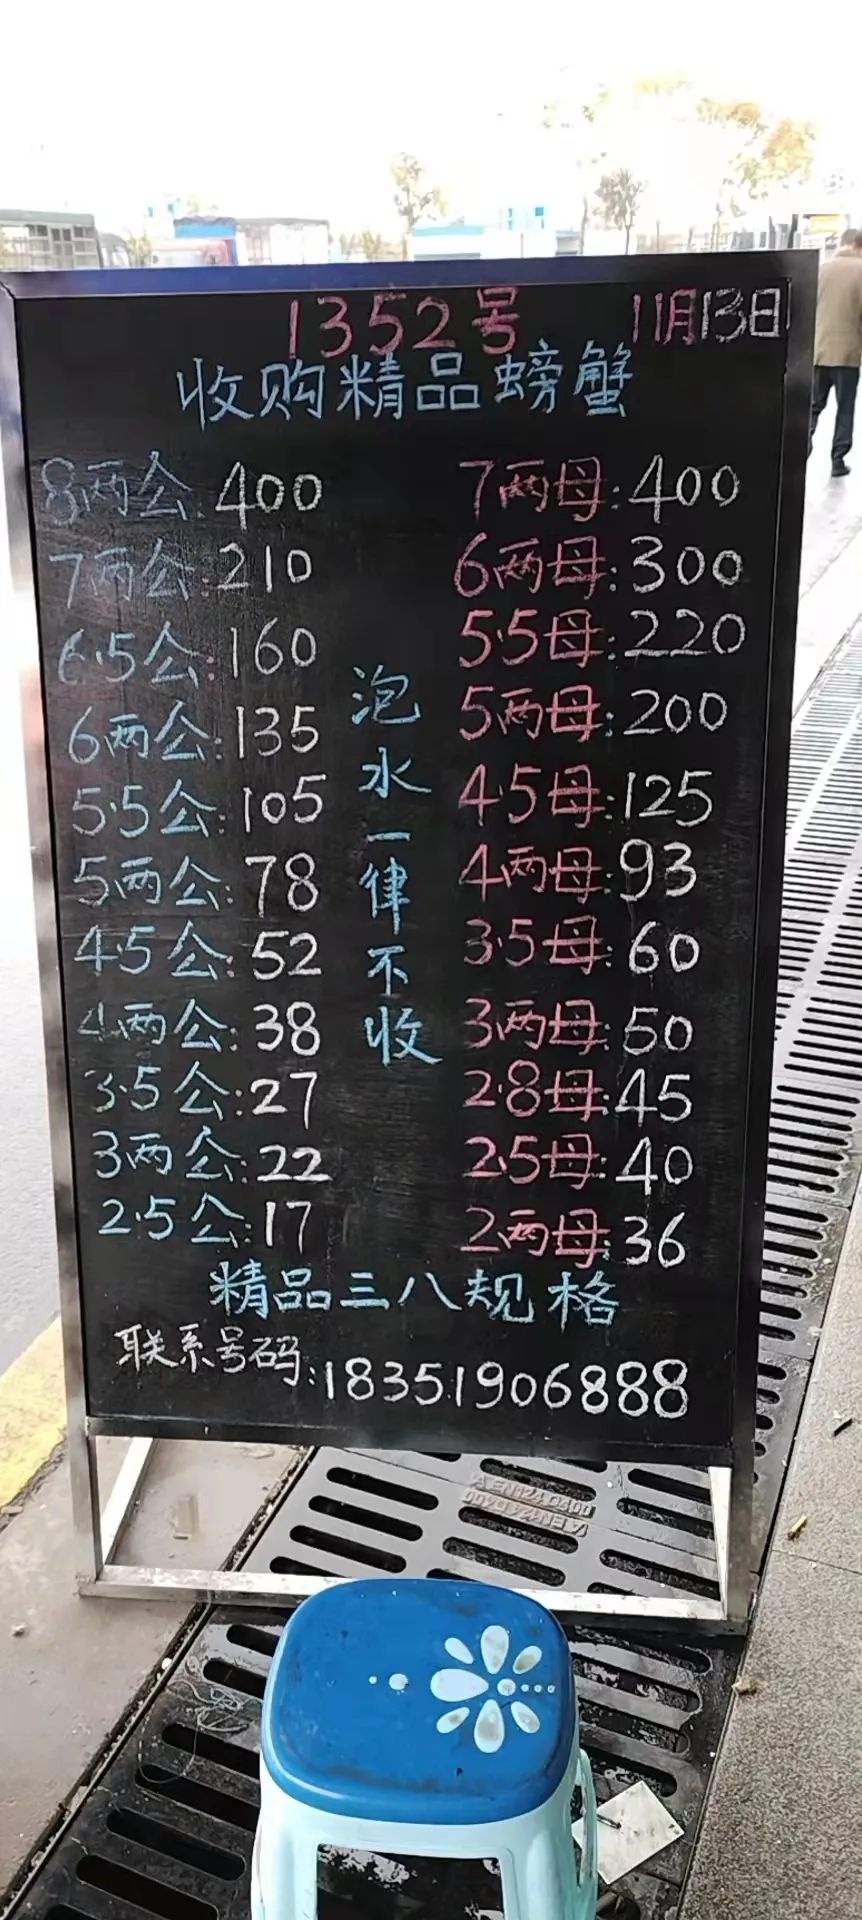 1352号 11月13日
收购精品螃蟹
8两公:400 7两母:400
7两公:210 6两母:300
6.5公:160 5.5母:220
6两公:135 5两母:200
5.5公:105 4.5母:125
5两公:78 4两母:93
4.5公:52 3.5母:60
4两公:38 3两母:50
3.5公:27 2.8母:45
3两公:22 2.5母:40
2.5公:17 2两母:36
泡水一律不收
精品三八规格
联系号码:18351906888